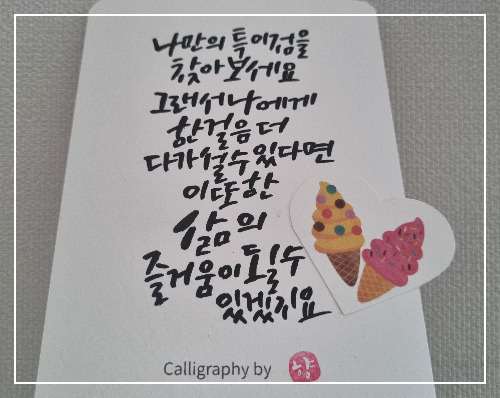 나만의 특이점을
찾아보세요
그래서 나에게
한걸음 더
다가설수 있다면
이 또한
삶의
즐거움이 될수
있겠지요
Calligraphy by
냥